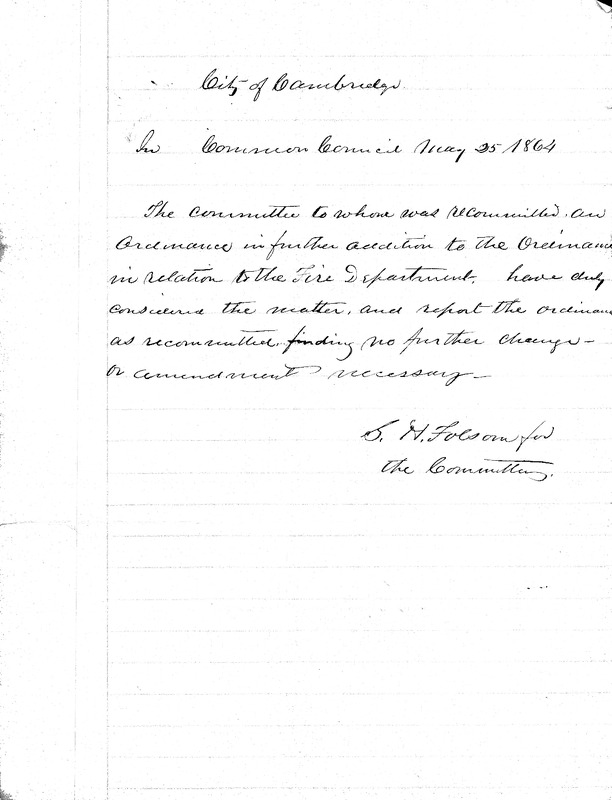 City of Cambridge
In Common Council May 25 1864
The committee to whom was recommitted, an
Ordinance in further addition to the Ordinance
in relation to the Fire Department, have duly
considered the matter, and report the ordinance
as recommitted, finding no further change -
or amendment necessary -
S. H. Folsom for
the Committee.